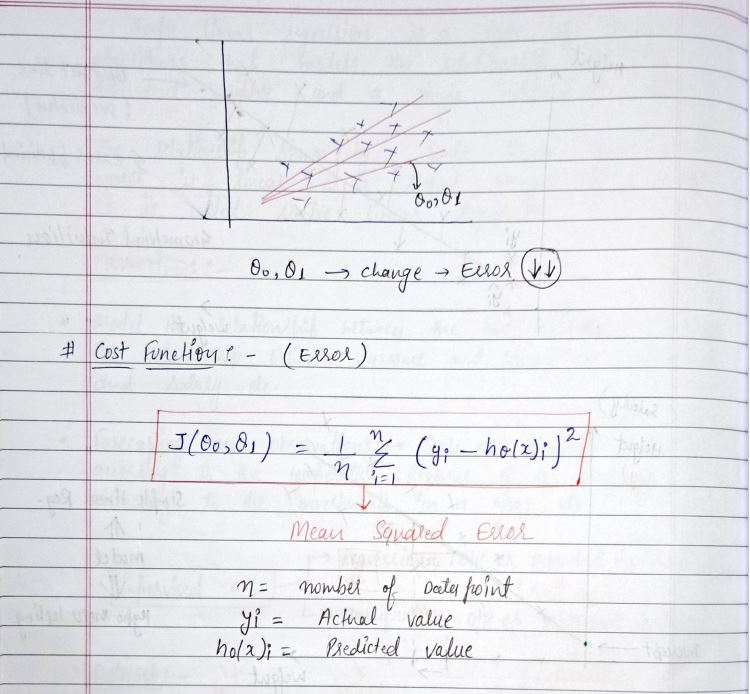 θ₀, θ₁
θ₀, θ₁ → change → Error ↓↓
# Cost Function :- (Error)
J(θ₀, θ₁) = 1/n Σⁿᵢ₌₁ (yi – hθ(x)i)²
Mean Squared Error
n = number of Data point
yi = Actual value
hθ(x)i = Predicted value